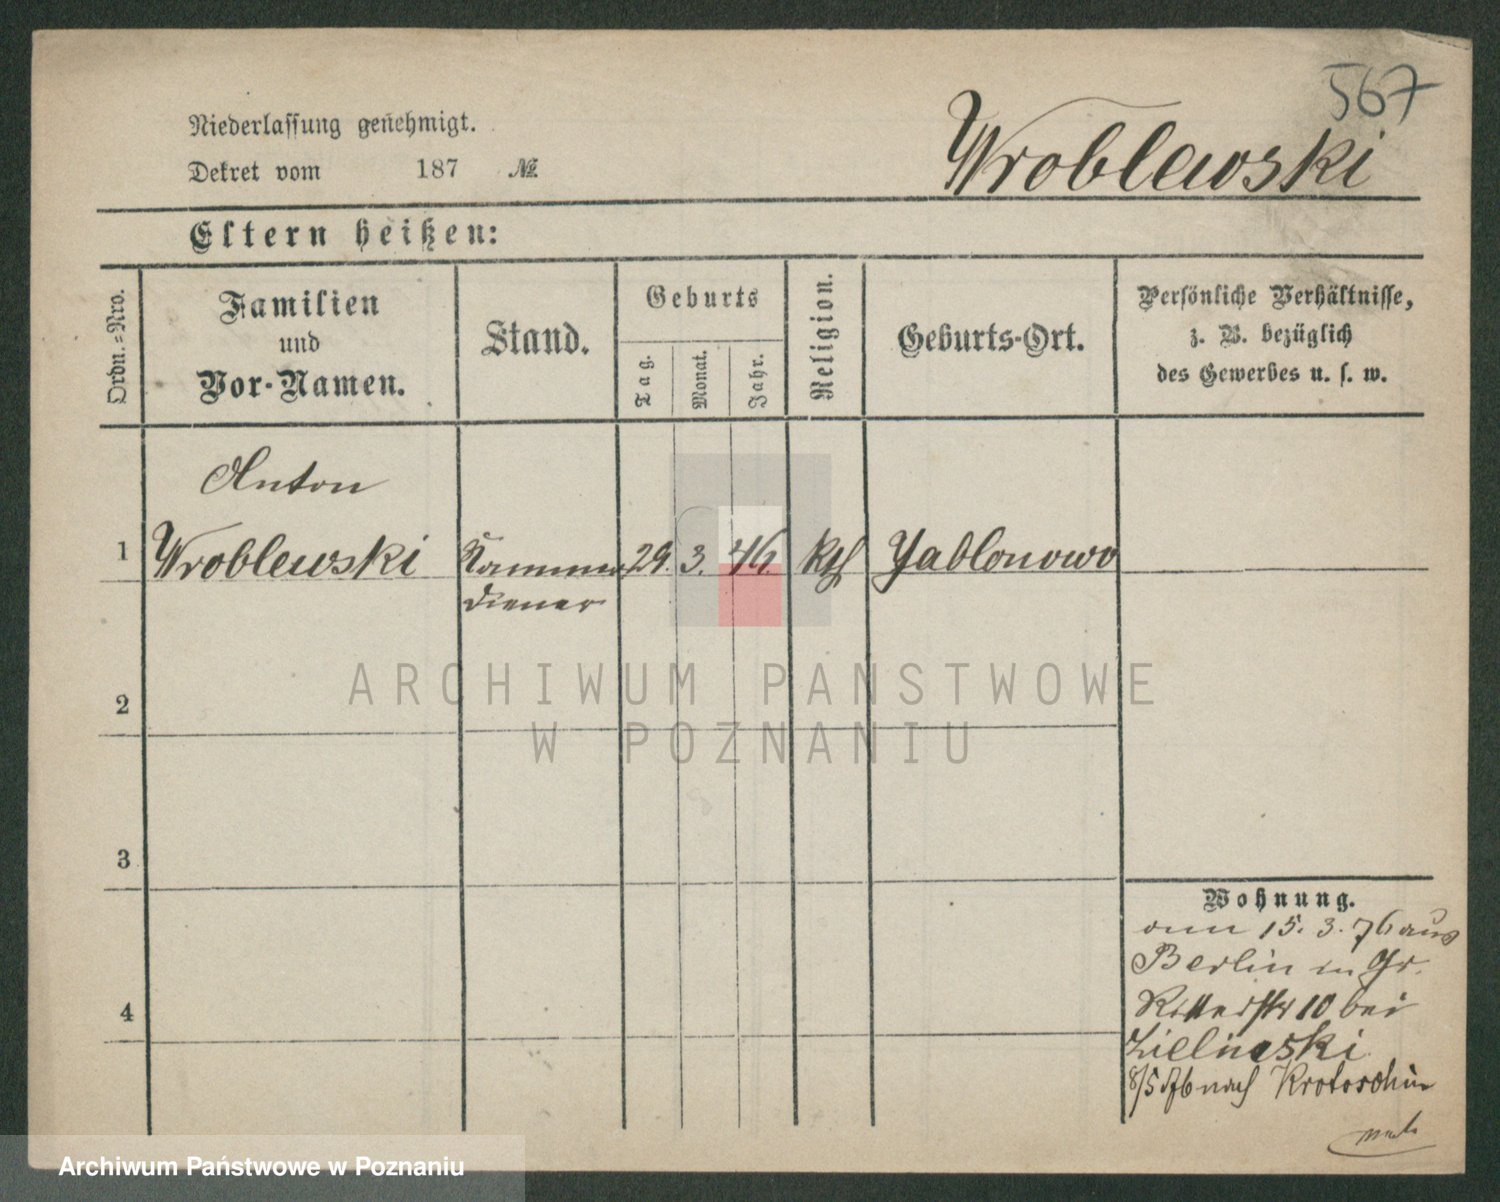 567
Niederlassung genehmigt.
Wroblewski
Dekret vom 187 №
Eltern heißen:
Ordn.=Nro.
Familien
und
Vor-Namen.
Stand.
Geburts
Tag.
Monat.
Jahr.
Religion.
Geburts-Ort.
Persönliche Verhältnisse,
z. B. bezüglich
des Gewerbes u. s. w.
Anton
1 Wroblewski Kammer 29. 3. 46. kth Jablonowo
diener
ARCHIWUM PAŃSTWOWE
W POZNANIU
2
3
4
Wohnung.
15. 3. 76 aus
Berlin in Gr.
Ritterstr 10 bei
Zielinski
8/5 76 nach Krotoschin
Archiwum Państwowe w Poznaniu